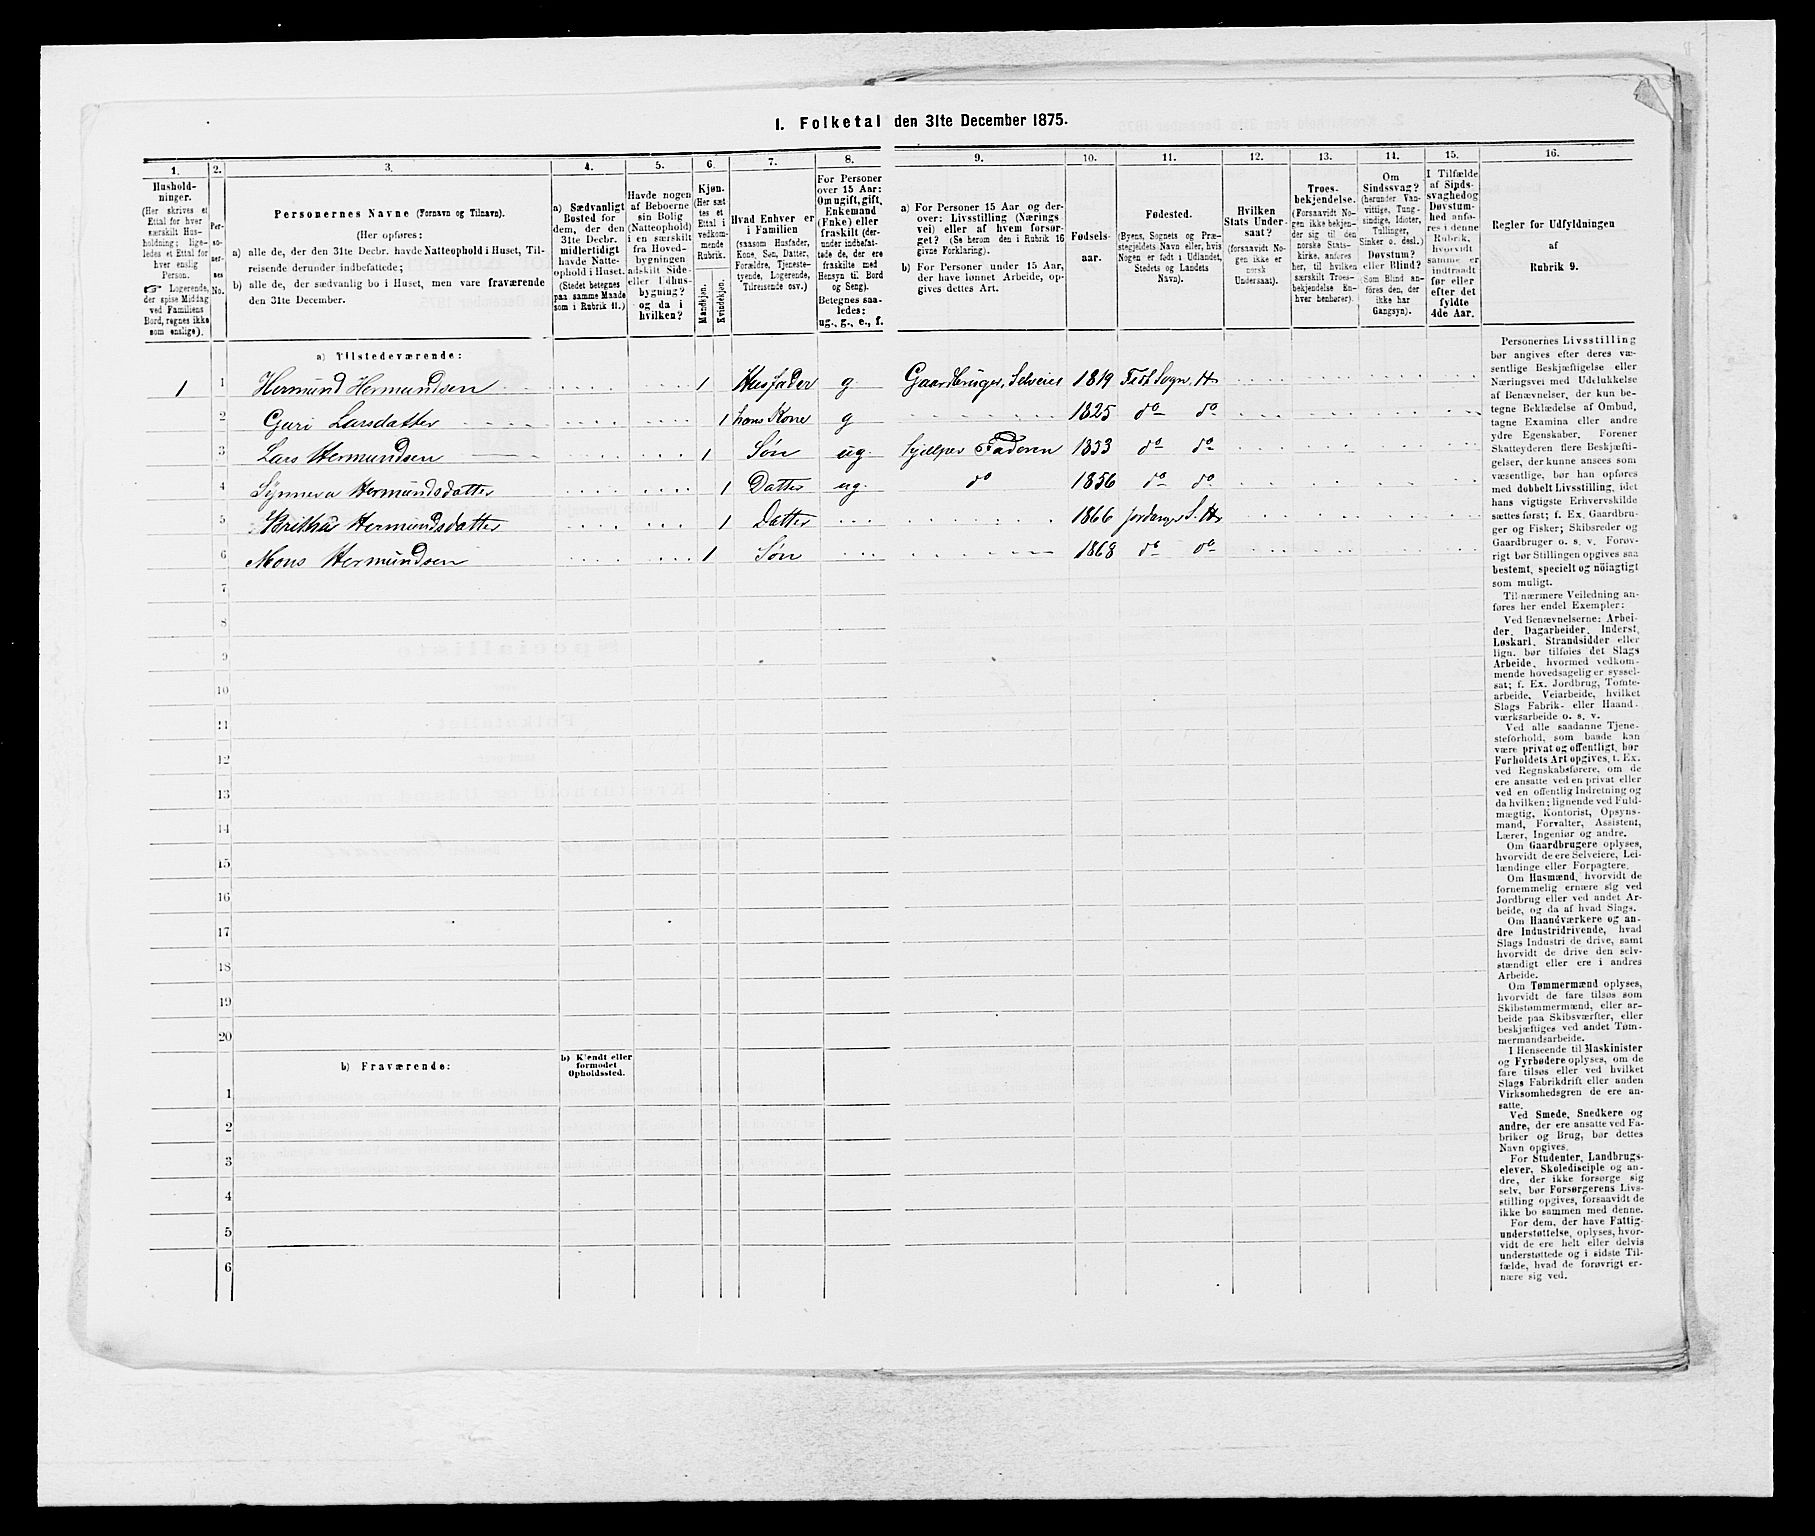 1. Folketal den 31te December 1875.
1. 2. 3. 4. 5. 6. 7. 8. 9. 10. 11. 12. 13. 14. 15. 16.
Hushold-
ninger.
(Her skrives et
Ettal for hver
særskilt Hus-
holdning; lige-
ledes et Ettal for
hver enslig
Person.
☞ Logerende,
der spise Middag
ved Familiens
Bord, regnes ikke
som enslige).
Per-
so-
ner-
nes
No.
Personernes Navne (Fornavn og Tilnavn).
(Her opføres:
a) alle de, der den 31te Decbr. havde Natteophold i Huset, Til-
reisende derunder indbefattede;
b) alle de, der sædvanlig bo i Huset, men vare fraværende
den 31te December.
a) Sædvanligt
Bosted for
dem, der den
31te Decbr.
midlertidigt
havde Natte-
ophold i Huset.
(Stedet betegnes
paa samme Maade
som i Rubrik 11.)
Havde nogen
af Beboerne
sin Bolig
(Natteophold)
i en særskilt
fra Hoved-
bygningen
adskilt Side-
eller Udhus-
bygning?
og da i
hvilken?
Kjøn.
(Her sæt-
tes et
Ettal i
vedkom-
mende
Rubrik.
Mandkjøn.
Kvindekjøn.
Hvad Enhver er
i Familien
(saasom Husfader,
Kone, Søn, Datter,
Forældre, Tjeneste-
tyende, Logerende,
Tilreisende osv.)
For Personer
over 15 Aar:
Om ugift, gift,
Enkemand
(Enke) eller
fraskilt (der-
under indbefat-
tede de, der ere
fraskilte med
Hensyn til Bord
og Seng).
Betegnes saa-
ledes:
ug., g., e., f.
a) For Personer 15 Aar og der-
over: Livsstilling (Nærings
vei) eller af hvem forsør-
get? (Se herom den i Rubrik 16
givne Forklaring).
b) For Personer under 15 Aar,
der have lønnet Arbeide, op-
gives dettes Art.
Fødsels-
aar.
Fødested.
(Byens, Sognets og Præ-
stegjeldets Navn eller, hvis
Nogen er født i Udlandet,
Stedets og Landets
Navn).
Hvilken
Stats Under-
saat?
(forsaavidt No-
gen ikke er
norsk
Undersaat).
Troes-
bekjendelse.
(Forsaavidt No-
gen ikke bekjen-
der sig til den
norske Stats-
kirke, anføres
her, til hvilken
særskilt Troes-
bekjendelse En-
hver henhører).
Om
Sindssvag?
(herunder Van-
vittige, Tung-
sindige, Idioter,
Sinker o. desl.)
Døvstum?
eller Blind?
(Som Blind an-
føres den, der
ikke har
Gangsyn).
I Tilfælde
af Sinds-
svaghed og
Døvstum-
hed anfø-
res i denne
Rubrik,
hvorvidt
samme er
indtraadt
før eller
efter det
fyldte
4de Aar.
Regler for Udfyldningen
af
Rubrik 9.
a) Tilstedeværende:
1 1 Hermund Hermundsen 1 Husfader g Gaardbruger, Selveier 1819 Fest Sogn, H
2 Guri Larsdatter 1 hans Kone g 1825 do do
3 Lars Hermundsen 1 Søn ug. hjelper Faderen 1853 do do
4 Synneva Hermundsdatter 1 Datter ug. do 1856 do do
5 Britha Hermundsdatter 1 Datter 1866 S. H
6 Mons Hermundsen 1 Søn 1868 do do
7
8
9
10
11
12
13
14
15
16
17
18
19
20
b) Fraværende:
b) Kjendt eller
formodet
Opholdssted.
1
2
3
4
5
6
Personernes Livsstilling
bør angives efter deres væ-
sentlige Beskjæftigelse eller
Næringsvei med Udelukkelse
af Benævnelser, der kun be-
tegne Beklædelse af Ombud,
tagne Examina eller andre
ydre Egenskaber. Forener
Skatteyderen flere Beskjæfti-
gelser, der kunne ansees som
væsentlige, bør han opføres
med dobbelt Livsstilling, idet
hans vigtigste Erhvervskilde
sættes først; f. Ex. Gaardbru-
ger og Fisker; Skibsreder og
Gaardbruger o. s. v. Forøv-
rigt bør Stillingen opgives saa
bestemt, specielt og nöiagtigt
som muligt.
Til nærmere Veiledning an-
føres her endel Exempler:
Ved Benævnelserne: Arbei-
der, Dagarbeider, Inderst,
Løskarl, Strandsidder eller
lign. bør tilføies det Slags
Arbeide, hvormed vedkom-
mende hovedsagelig er syssel-
sat; f. Ex. Jordbrug, Tomte-
arbeide, Veiarbeide, hvilket
Slags Fabrik- eller Haand-
værksarbeide o. s. v.
Ved alle saadanne Tjene-
steforhold, som baade kan
være privat og offentligt, bør
Forholdets Art opgives, t. Ex.
ved Regnskabsførere, om de
ere ansatte ved en privat eller
ved en offentlig Indretning og
da hvilken; lignende ved Fuld-
mægtig, Kontorist, Opsyns-
mand, Forvalter, Assistent,
Lærer, Ingeniør og andre.
Om Gaardbrugere oplyses,
hvorvidt de ere Selveiere, Lei-
lændinge eller Forpagtere.
Om Husmænd, hvorvidt de
fornemmelig ernære sig ved
Jordbrug eller ved andet Ar-
beide, og da af hvad Slags.
Om Haandværkere og an-
dre Industridrivende, hvad
Slags Industri de drive, samt
hvorvidt de drive den selv-
stændigt eller ere i andres
Arbeide.
Om Tømmermænd oplyses,
hvorvidt de fare tilsøs som
Skibstømmermænd, eller ar-
beide paa Skibsværfter, eller
beskjæftiges ved andet Tøm-
mermandsarbeide.
I Henseende til Maskinister
og Fyrbødere oplyses, om de
fare tilsøs eller ved hvilket
Slags Fabrikdrift eller anden
Virksomhedsgren de ere an-
satte.
Ved Smede, Snedkere og
andre, der ere ansatte ved Fa-
briker og Brug, bør dettes
Navn opgives.
For Studenter, Landbrugs-
elever, Skoledisciple og an-
dre, der ikke forsørge sig
selv, bør Forsørgerens Livs-
stilling opgives, forsaavidt de
ikke bo sammen med denne.
For dem, der have Fattig-
understøttelse, oplyses, hvor-
vidt de ere helt eller delvis
understøttede og i sidste Til-
fælde, hvad de forøvrigt er-
nære sig ved.